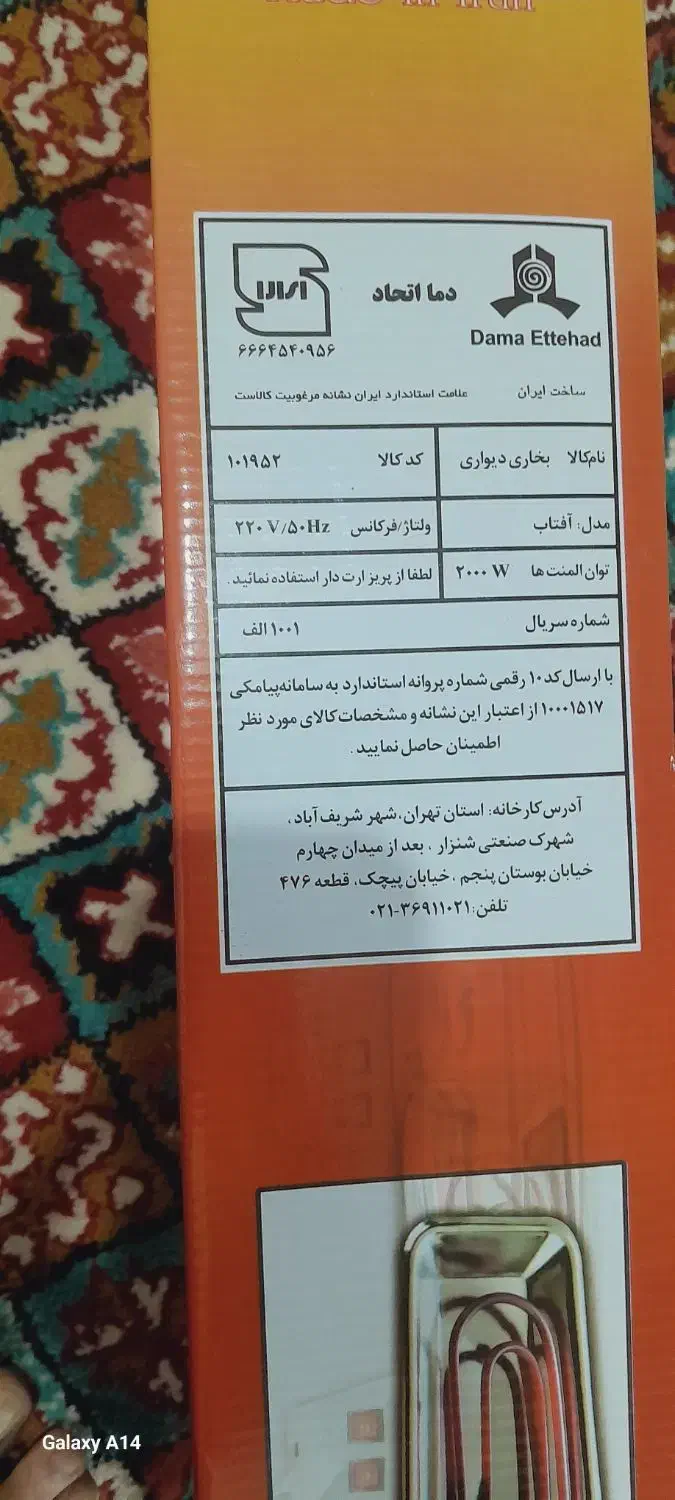 Made in Iran
ایران
دما اتحاد
Dama Ettehad
۶۶۶۴۵۴۰۹۵۶
ساخت ایران علامت استاندارد ایران نشانه مرغوبیت کالاست
نام کالا بخاری دیواری کد کالا ۱۰۱۹۵۲
مدل: آفتاب ولتاژ/فرکانس ۲۲۰ V/۵۰Hz
توان المنت ها ۲۰۰۰ W لطفا از پریز ارت دار استفاده نمائید.
شماره سریال ۱۰۰۱ الف
با ارسال کد ۱۰ رقمی شماره پروانه استاندارد به سامانه پیامکی
۱۰۰۰۱۵۱۷ از اعتبار این نشانه و مشخصات کالای مورد نظر
اطمینان حاصل نمایید.
آدرس کارخانه: استان تهران، شهر شریف آباد،
شهرک صنعتی شنزار، بعد از میدان چهارم
خیابان بوستان پنجم، خیابان پیچک، قطعه ۴۷۶
تلفن: ۰۲۱-۳۶۹۱۱۰۲۱
Galaxy A14